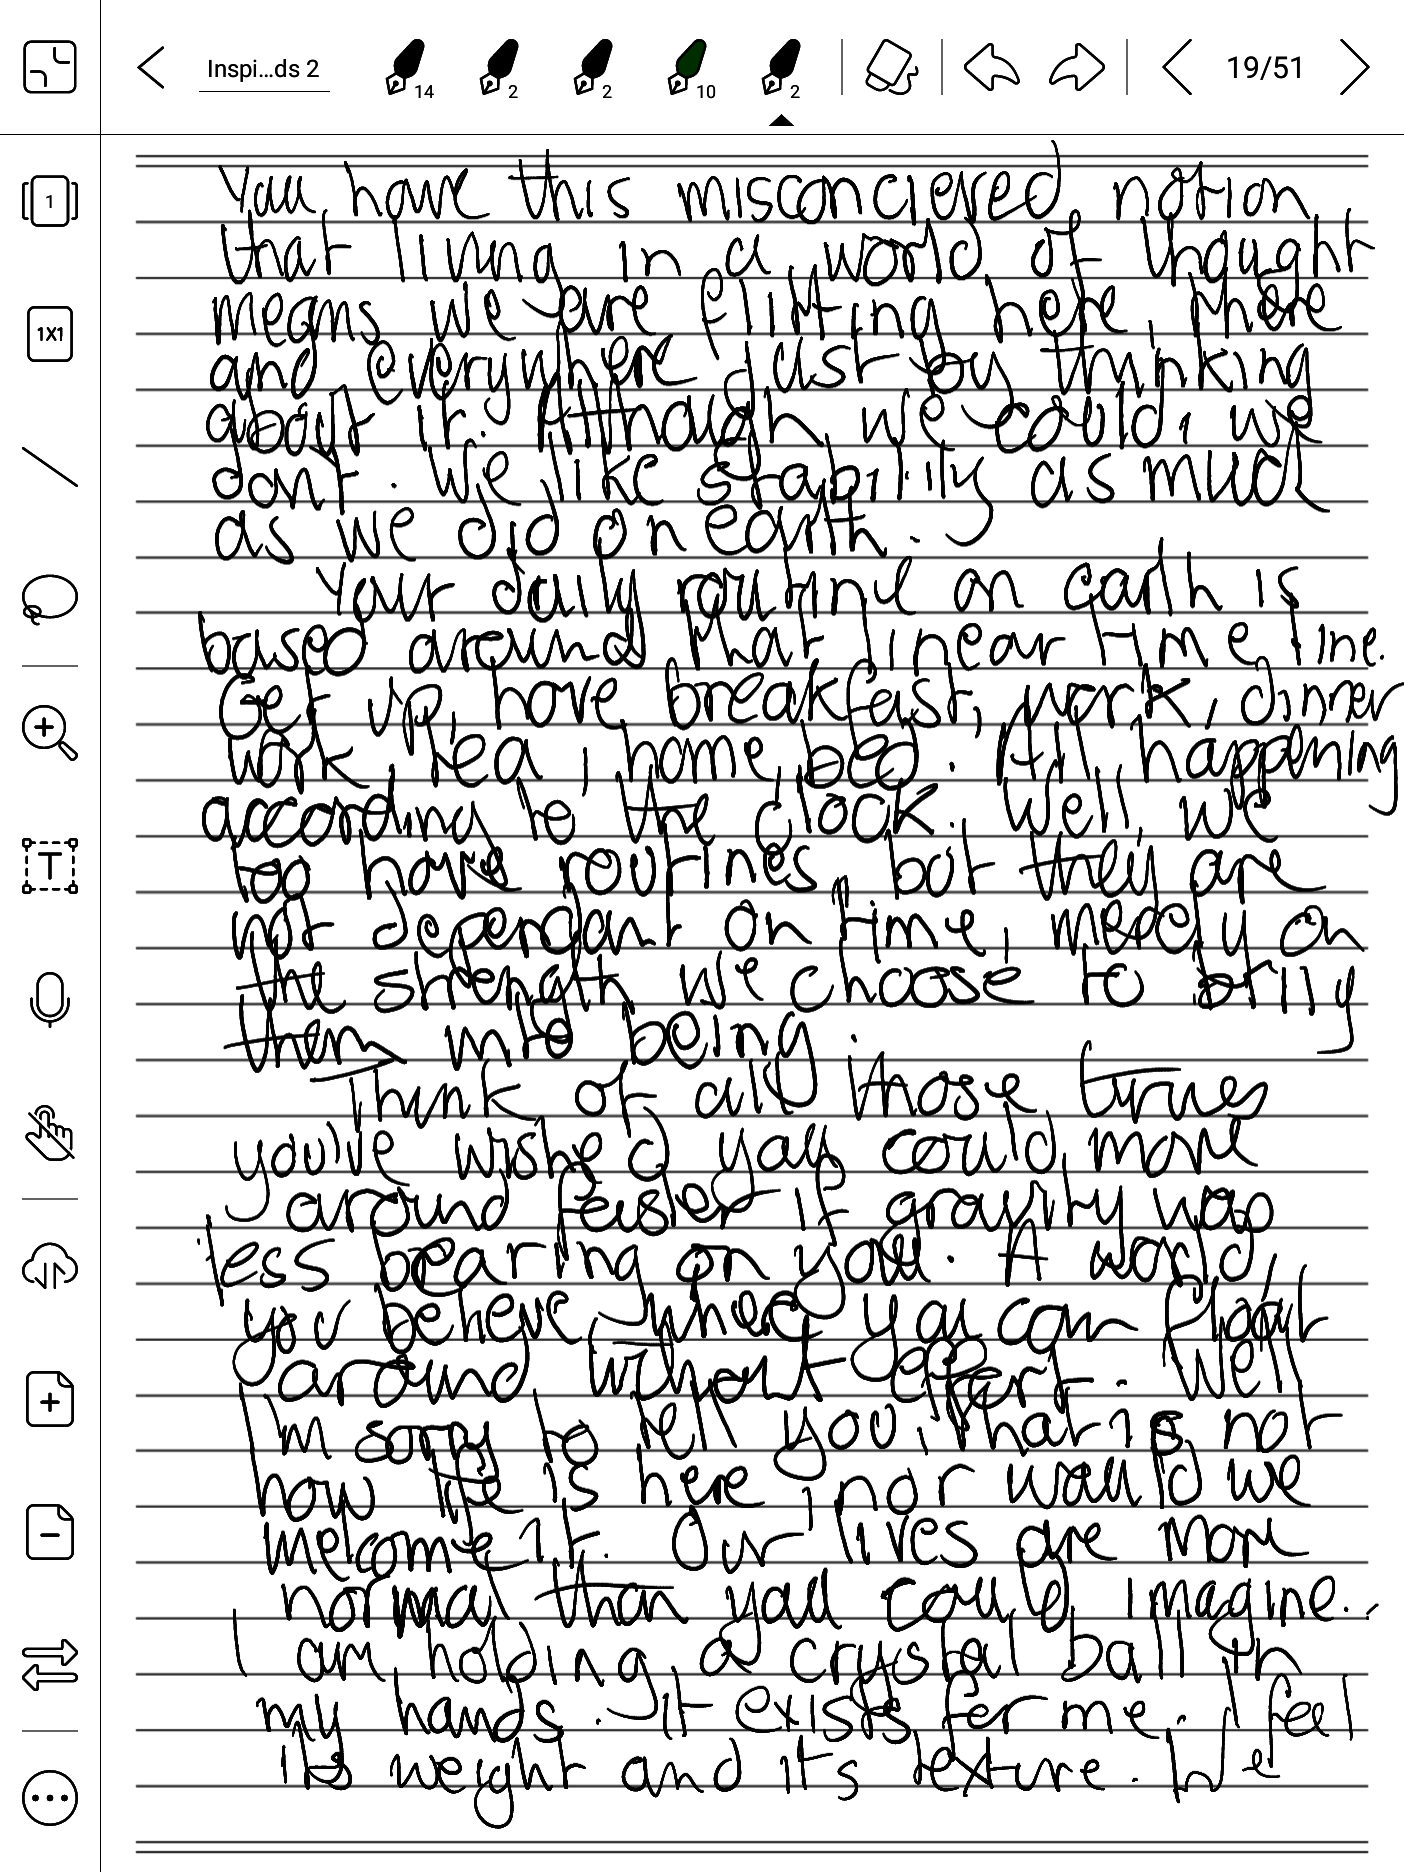 Inspi...ds 2
14
2
2
10
2
19/51
1
1X1
T
You have this misconcieved notion
that living in a world of thought
means we are flitting here, there
and everywhere just by thinking
about it. Although we could, we
don't. We like stability as much
as we did on earth.
Your daily routine on earth is
based around that linear time line.
Get up, have breakfast, work, dinner
work, tea, home, bed. All happening
according to the clock. Well, we
too have routines, but they are
not dependant on time, merely on
the strength we choose to bring
them into being.
Think of all those times
you've wished you could move
around faster if gravity was
less bearing on you. A world,
you believe where you can float
around without effort. Well
I'm sorry to tell you, that is not
how life is here, nor would we
welcome it. Our lives are more
normal than you could imagine..
I am holding a crystal ball in
my hands. It exists for me. I feel
its weight and its texture. We